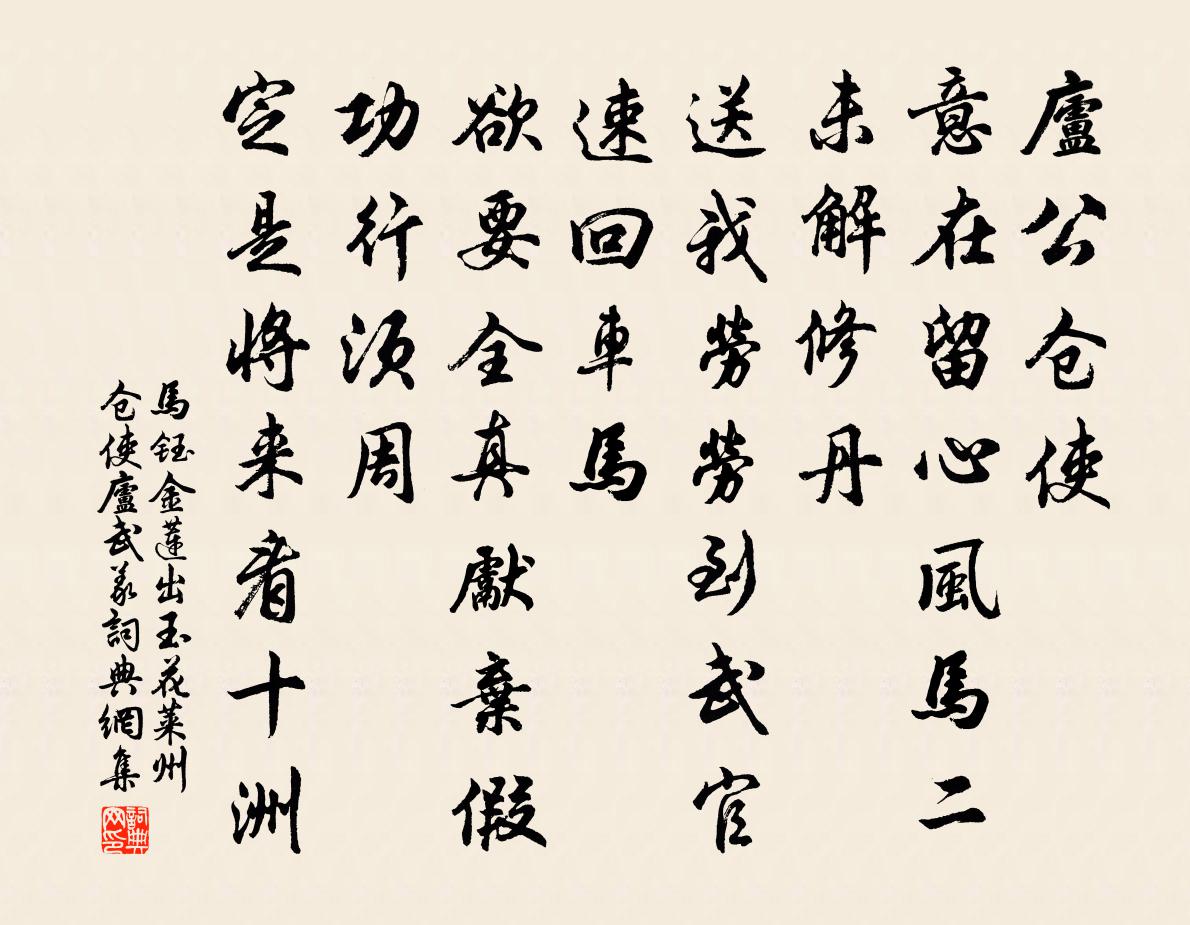 廬公仓使
意在留心風馬二
未解修丹
送我勞勞到武官
速回車馬
欲要全真獻棄假
功行須周
定是將来看十洲
馬鈺金蓮出玉花萊州
仓使廬武义詞典網集
詞典
网印